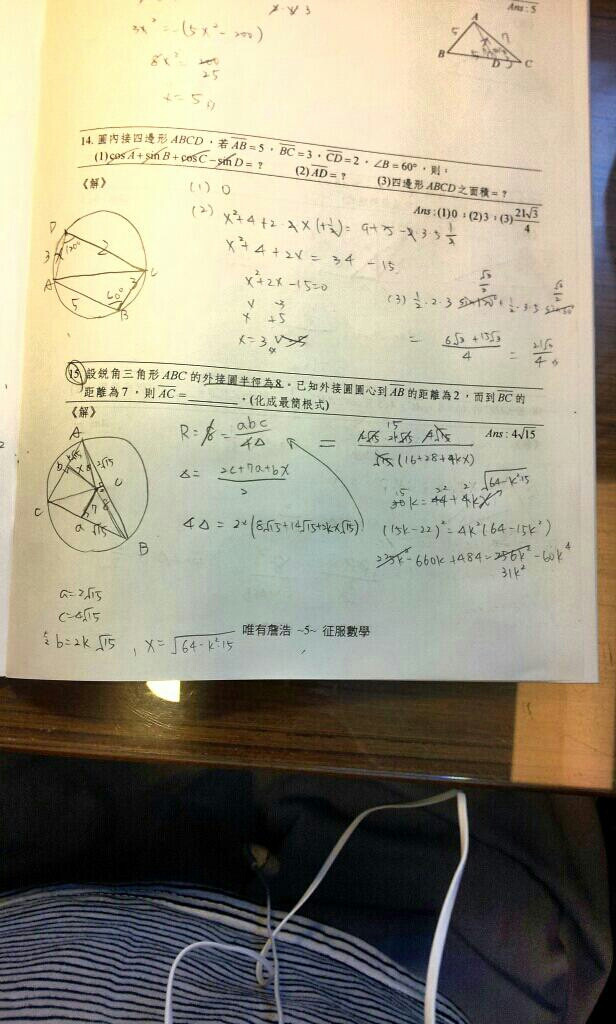 Ans : 5
3x² = -(5x² - 200)
8x² = 200
25
x = 5
A
5
7
B
D
C
14. 圓內接四邊形 ABCD，若 AB = 5，BC = 3，CD = 2，∠B = 60°，則：
(1) cos A + sin B + cos C - sin D = ? (2) AD = ? (3) 四邊形 ABCD 之面積 = ?
《解》
Ans : (1) 0 ; (2) 3 ; (3) 21√3/4
(1) 0
(2) x² + 4 + 2·2x(+1/2) = 9 + 25 - 2·3·5·1/2
x² + 4 + 2x = 34 - 15
x² + 2x - 15 = 0
x -3
x +5
x = 3
(3) 1/2·2·3 sin120° + 1/2·3·5 sin60°
√3/2
√3/2
= (6√3 + 15√3)/4 = 21√3/4
D
3
x
120°
2
C
A
3
5
60°
B
15. 設銳角三角形 ABC 的外接圓半徑為 8。已知外接圓圓心到 AB 的距離為 2，而到 BC 的
距離為 7，則 AC = ________。(化成最簡根式)
《解》
Ans : 4√15
R = 8 = abc/4Δ
Δ = (2c + 7a + bx)/2
4Δ = 2×(8√15 + 14√15 + 2kx√15)
√15 (16 + 28 + 4kx)
30k = 44 + 4kx
√64 - k²·15
(15k - 22)² = 4k²(64 - 15k²)
225k² - 660k + 484 = 256k² - 60k⁴
31k²
A
C
B
a
b
c
x
8
7
√15
2√15
a = 2√15
c = 4√15
b = 2k√15 , x = √64 - k²·15
唯有詹浩 ~5~ 征服數學